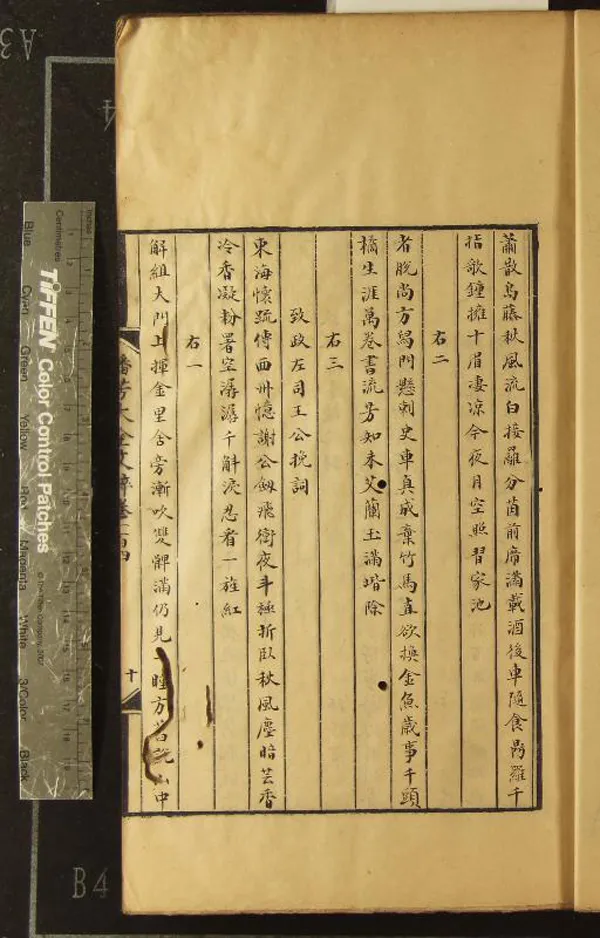 蕭散烏藤秋風流白接羅分茵前席滿載酒後車隨食昜羅千
指歌鍾擁十眉凄凉今夜月空照習家池
右二
者脫尚方舄門懸刺史車真成棄竹馬直欲換金魚歲事千頭
橘生涯萬卷書流芳知未艾蘭玉滿堦除
右三
致政左司王公挽詞
東海懷疏傅西州憶謝公劔飛衝夜斗極折臥秋風塵暗芸香
冷香凝粉署空潺潺千斛淚忍看一旌紅
右一
解組大門上揮金里舍旁漸吹雙髀滿仍見瞳方
中
播芳大全文粹卷一百四
十
TIFFEN Color Control Patches
© The Tiffen Company, 2007
Centimetres
Inches
Blue
Cyan
Green
Yellow
Red
Magenta
White
3/Color
Black
A3
4
B4